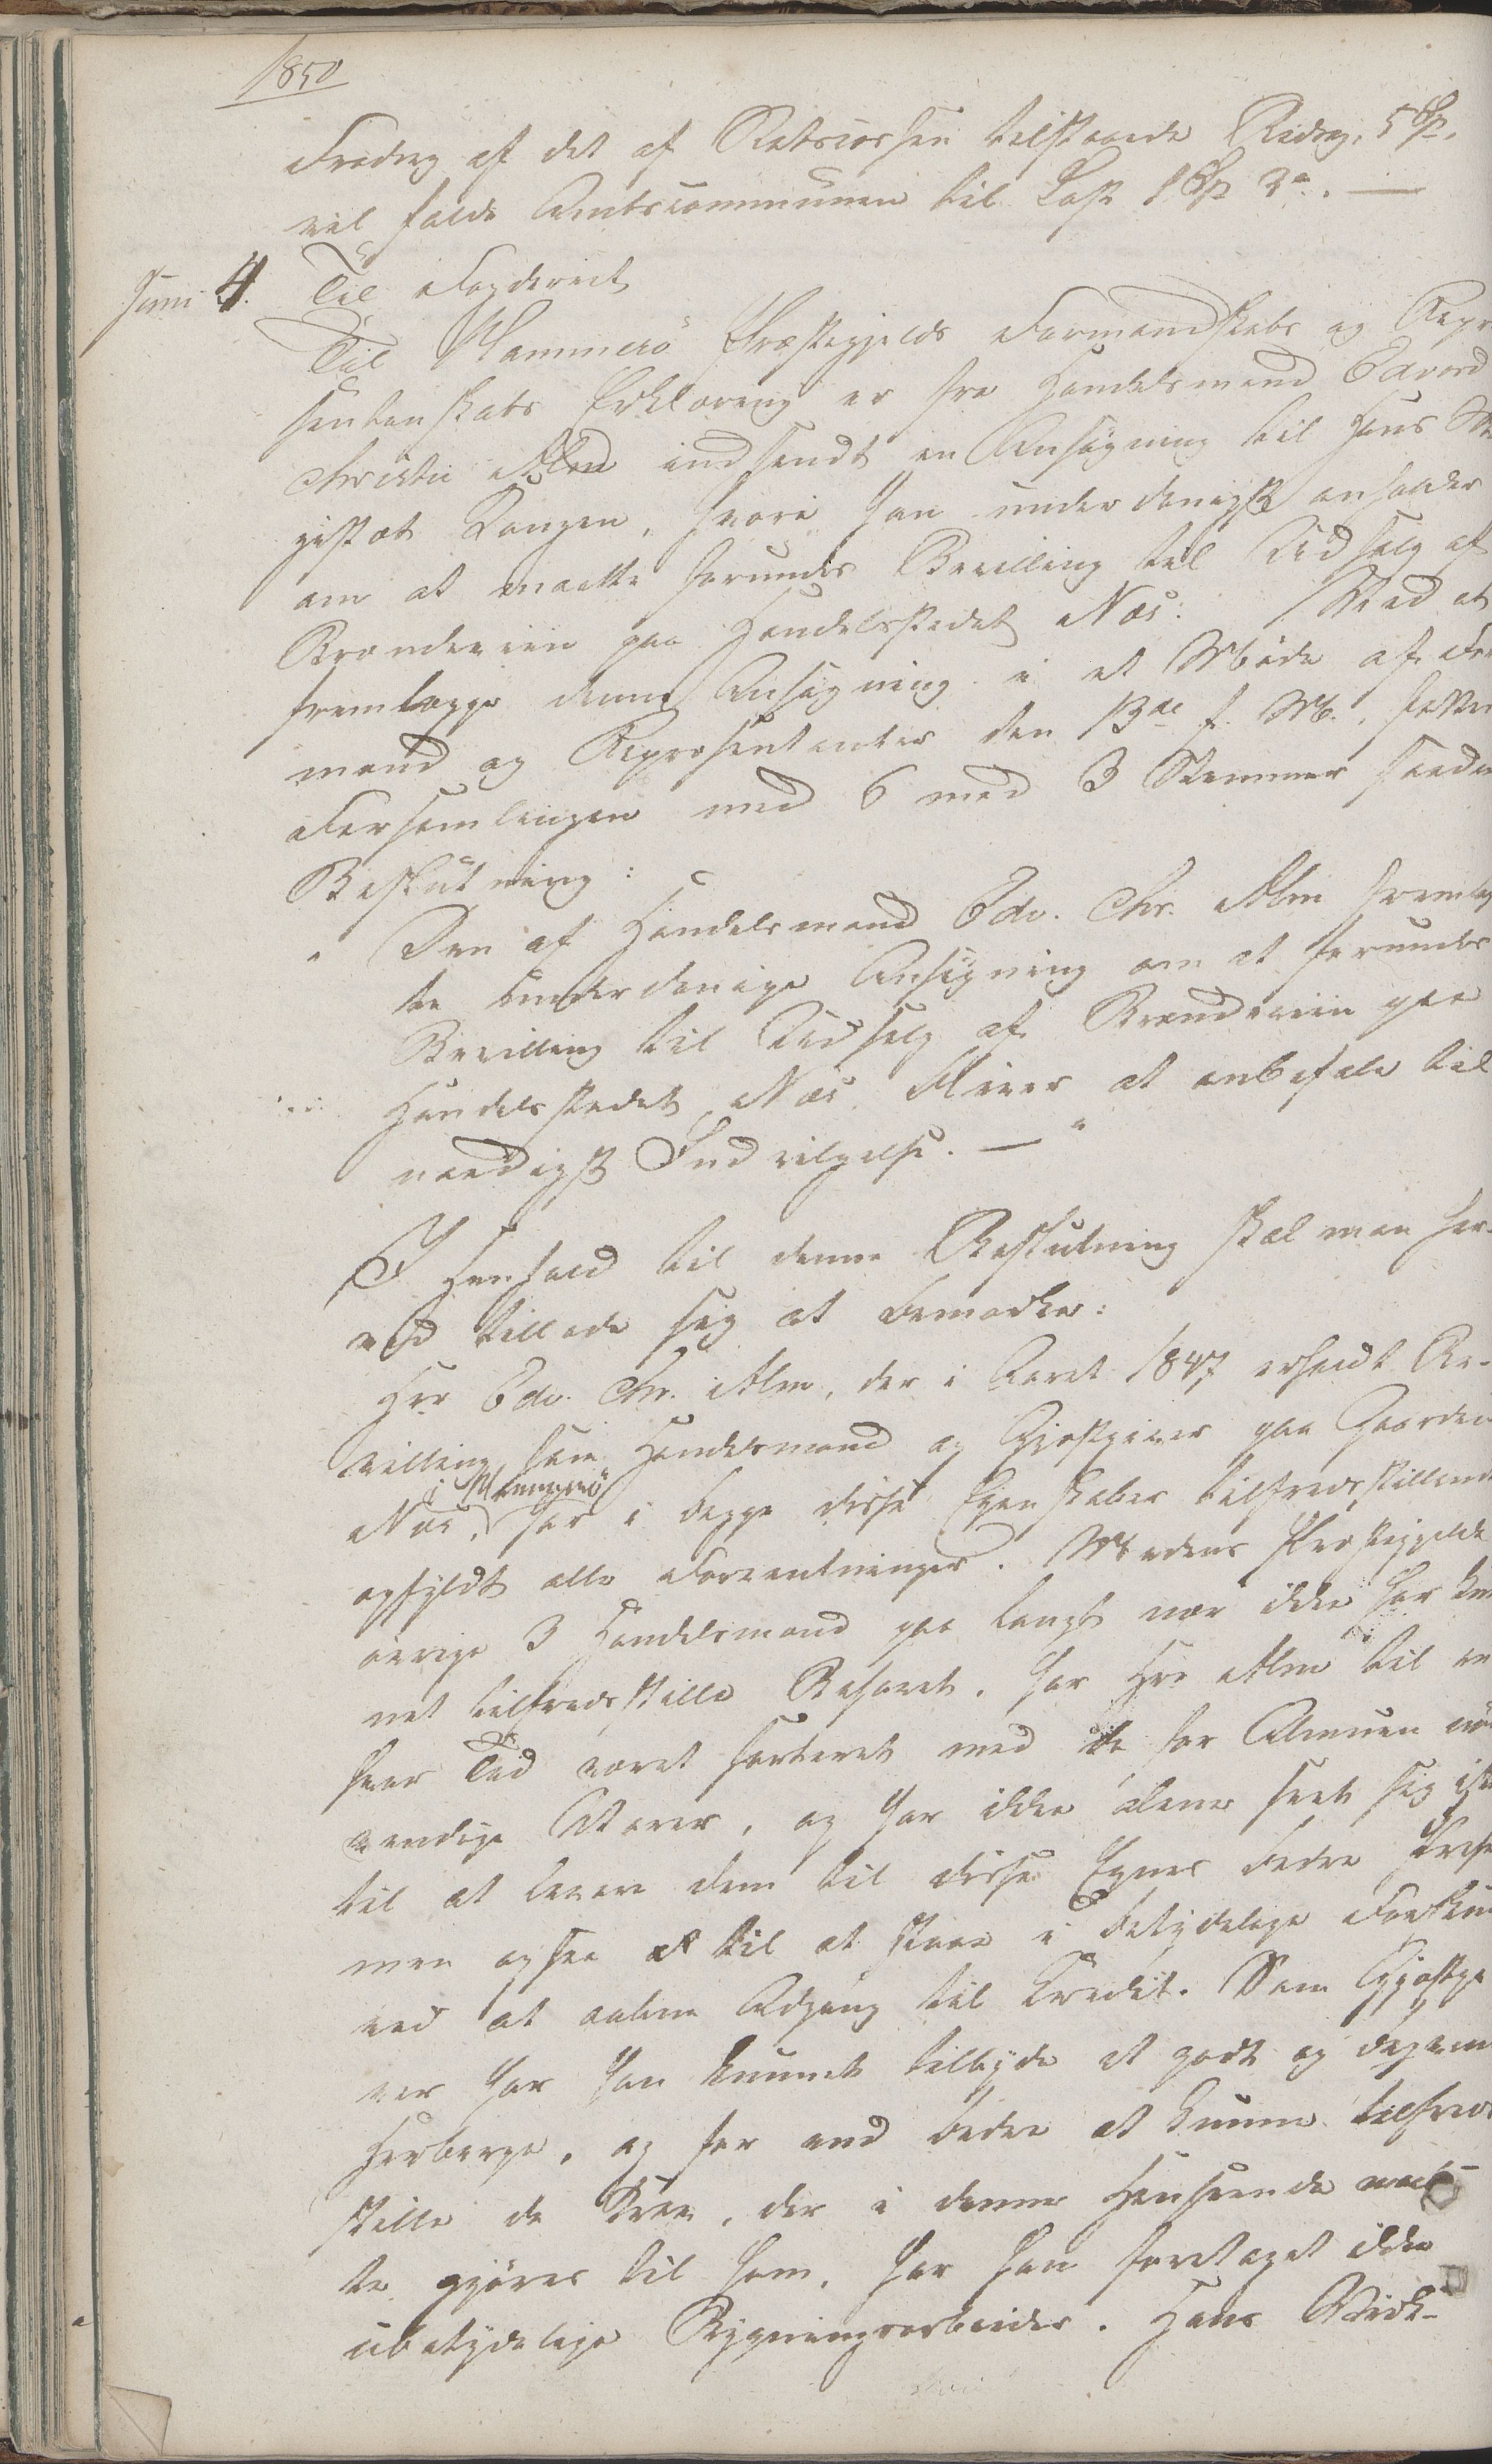 1850
Fradrag af det af Statscassen tilstaaede Bidrag, 5 Spd.
vil falde Amtscommunen til Last 1 Spd 3 .
Juni 4. Til Fogderiet
Til Hammerø Præstegjelds Formandskabs og Repræ
sentantskabs Erklæring er fra Handelsmand Edvard
Christie Alm indsendt en Ansøgning til Hans Ma
jestæt Kongen, hvori han underdanigst ansøger
om at maatte forundes Bevilling til Udsalg af
Brændeviin paa Handelsstedet Næs. Ved at
fremlægge denne Ansøgning i et Møde af For
mænd og Repræsentanter den 13de f. M., fattede
Forsamlingen med 6 mod 3 Stemmer saadan
Beslutning:
" Den af Handelsmand Edv. Chr. Alm fremlag
te underdanige Ansøgning om at forundes
Bevilling til Udsalg af Brændeviin paa
Handelsstedet Næs bliver at anbefale til
naadigst Indvilgelse. — "
I Henhold til denne Beslutning skal man her-
ved tillade sig at bemærke:
Hr Edv. Chr. Alm, der i Aaret 1847 erholdt Be-
villing som Handelsmand og Gjæstgiver paa Gaarden
Næs i Hammerø, har i begge disse Egenskaber tilfredsstillende
opfyldt alle Forventninger. Medens Præstegjeldets
øvrige 3 Handelsmænd paa langt nær ikke har kun
net tilfredsstille Behovet, har Hr Alm til en
hver Tid været forsynet med de for Almuen nød
vendige Varer, og har ikke alene seet sig istand
til at levere dem til disse Egnes bedre Priser
men ogsaa til at staae i betydelige Forskud
ved at aabne Adgang til Credit. Som Gjæstgi
ver har han kunnet tilbyde et godt og beqvemt
Herberge, og for end bedre at kunne tilfreds
stille de Krav, der i denne Henseende maat-
te gjøres til ham, har han foretaget ikke
ubetydelige Bygningsarbeider. Hans Virk-